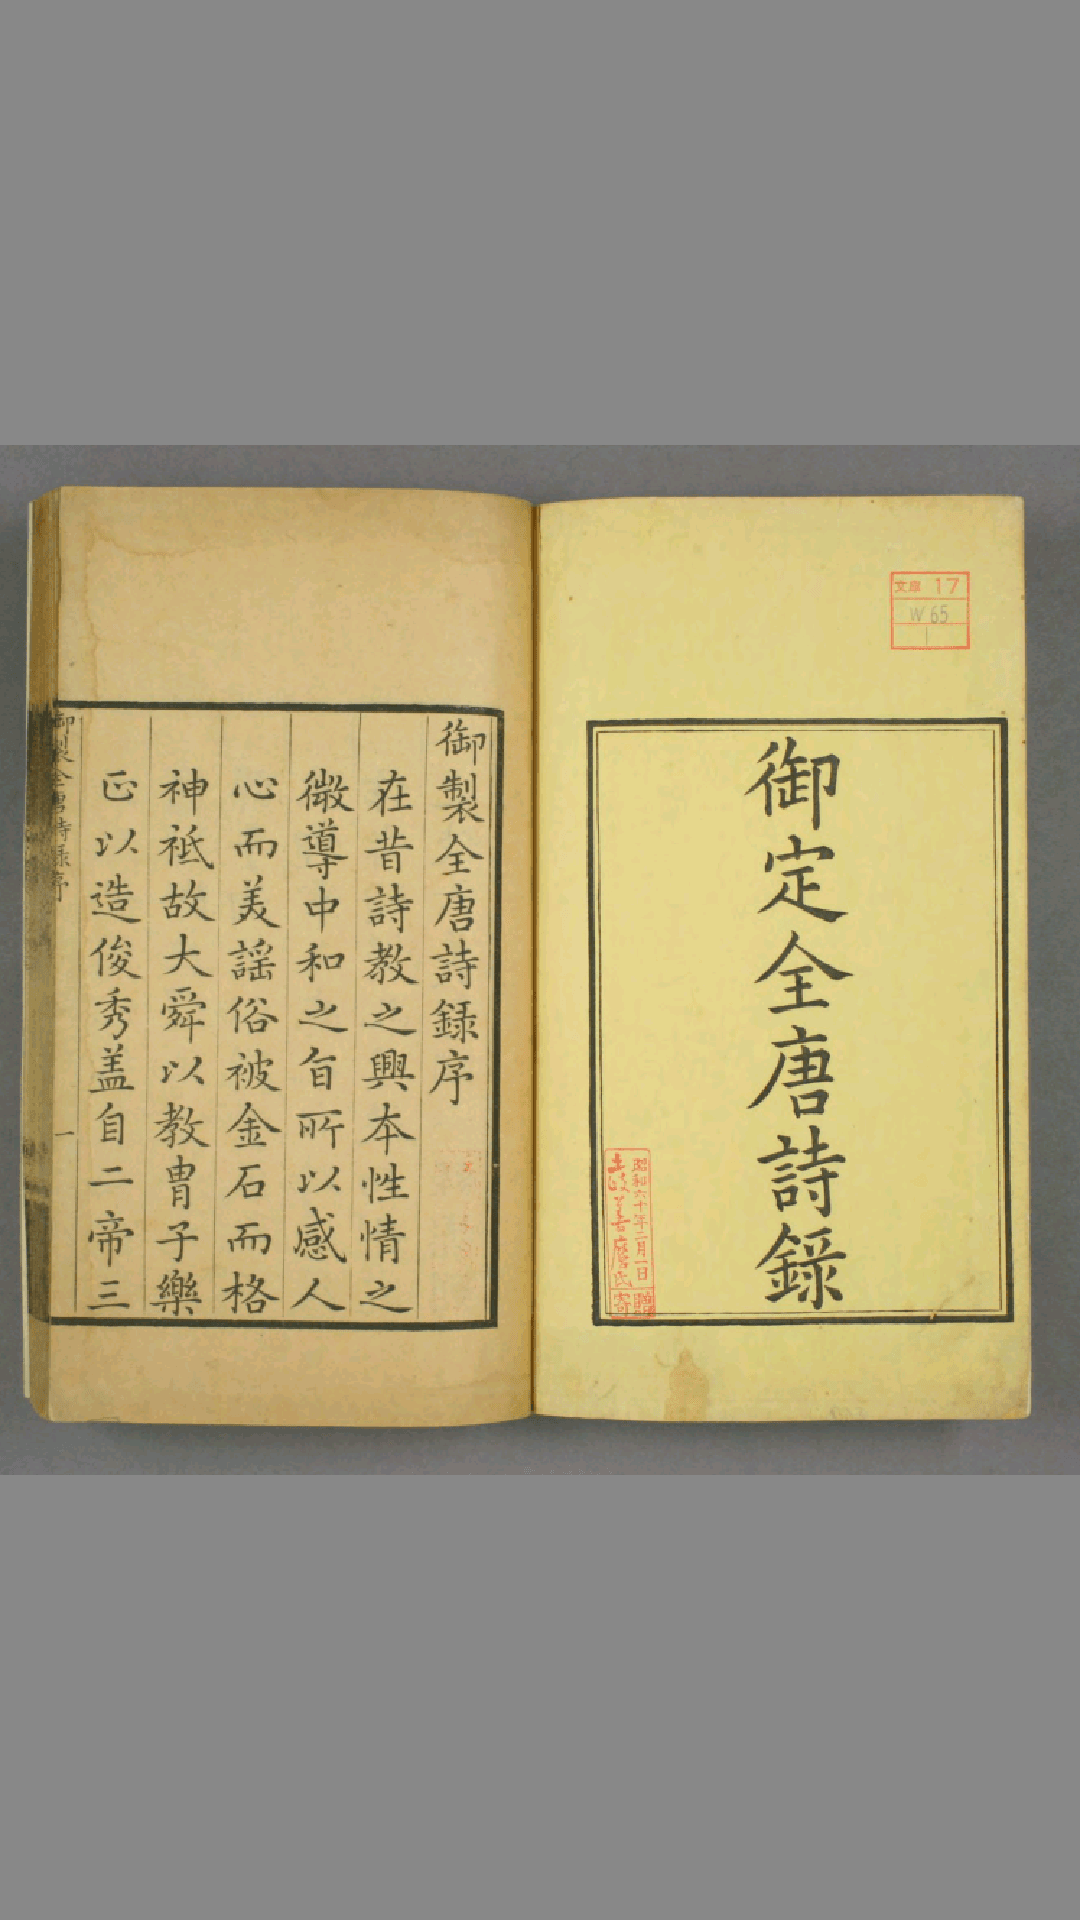 文庫 17
W 65
1
御定全唐詩錄
昭和六十年二月一日
土岐善麿氏
寄贈
御製全唐詩錄序
在昔詩教之興本性情之
微導中和之旨所以感人
心而美謠俗被金石而格
神祇故大舜以教冑子樂
正以造俊秀盖自二帝三
御製全唐詩録序
一